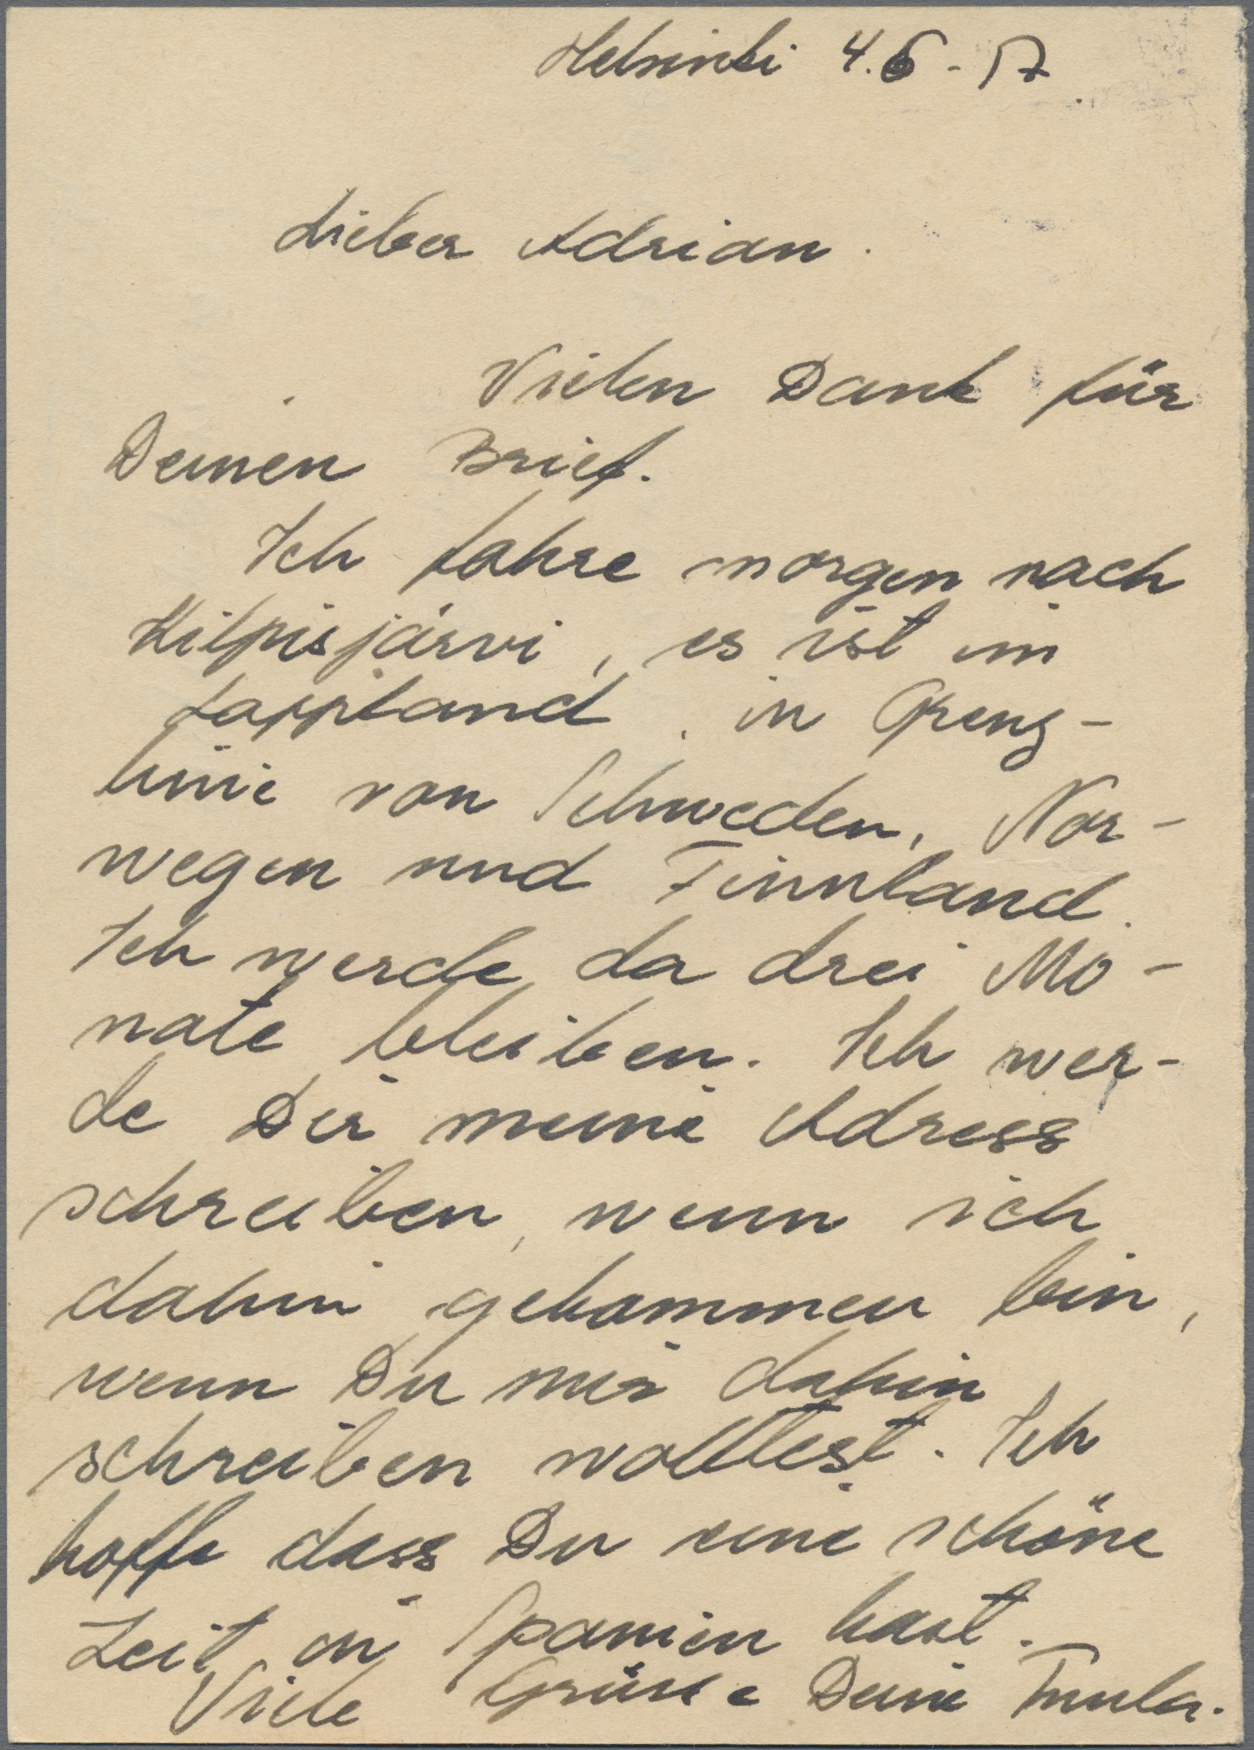 Helsinki 4.6-57
Lieber Adrian.
Vielen Dank für
Deinen Brief.
Ich fahre morgen nach
Kilpisjärvi, es ist im
Lappland, in Grenz-
linie von Schweden, Nor-
wegen und Finnland.
Ich werde da drei Mo-
nate bleiben. Ich wer-
de Dir meine Adress
schreiben, wenn ich
dahin gekommen bin,
wenn Du mir dahin
schreiben wolltest. Ich
hoffe dass Du eine schöne
Zeit in Spanien hast.
Viele Grüsse Deine Tuula.